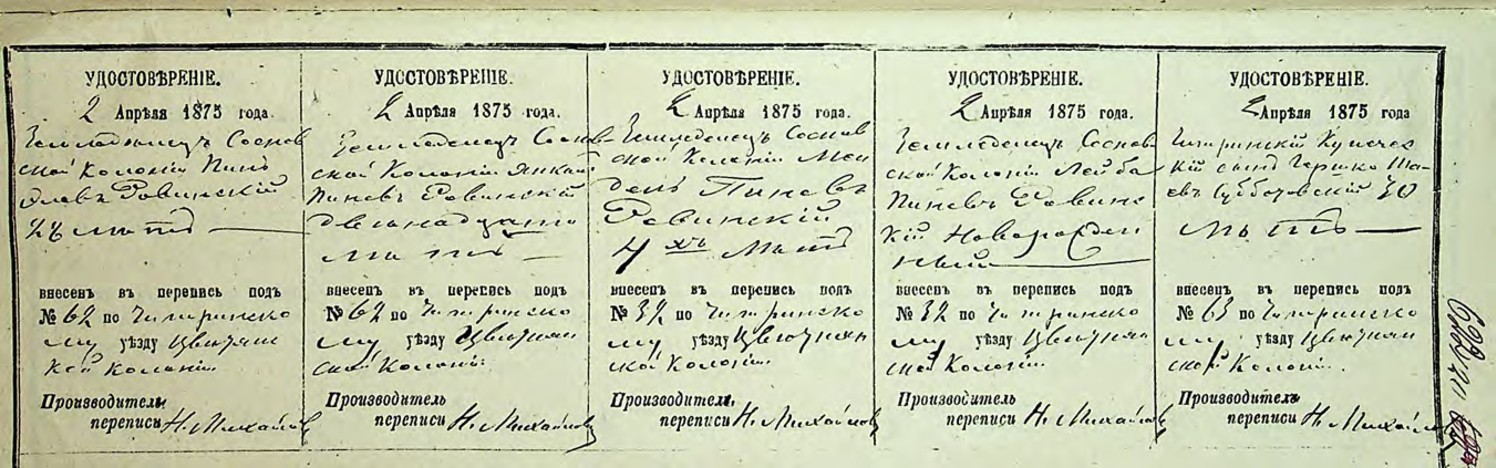 УДОСТОВѢРЕНІЕ.
2 Апрѣля 1875 года.
Земледелецъ Соснов
ской Колоніи Пинь
Ровинскій
внесенъ въ перепись подъ
№ 62 по Чигиринско
му уѣзду Цвѣтян
ской Колоніи.
Производитель
переписи Н. Михайлов
УДОСТОВѢРЕНІЕ.
2 Апрѣля 1875 года.
Земледелецъ Соснов
ской Колоніи Янкель
Пиневъ Ровинскій
двенадцати
летъ
внесенъ въ перепись подъ
№ 62 по Чигиринско
му уѣзду Цвѣтян
ской Колоніи.
Производитель
переписи Н. Михайловъ
УДОСТОВѢРЕНІЕ.
2 Апрѣля 1875 года.
Земледелецъ Соснов
ской Колоніи Мен
дель Пиневъ
Ровинскій
4 хъ летъ
внесенъ въ перепись подъ
№ 32 по Чигиринско
му уѣзду Цвѣтян
ской Колоніи.
Производитель
переписи Н. Михайловъ
УДОСТОВѢРЕНІЕ.
2 Апрѣля 1875 года.
Земледелецъ Соснов
ской Колоніи Лейба
Пиневъ Ровинс
кій Новорожден
ный
внесенъ въ перепись подъ
№ 32 по Чигиринско
му уѣзду Цвѣтян
ской Колоніи.
Производитель
переписи Н. Михайловъ
УДОСТОВѢРЕНІЕ.
2 Апрѣля 1875 года
Чигиринскій Купечес
кій сынъ Гершко
Субботовскій 30
летъ
внесенъ въ перепись подъ
№ 63 по Чигиринско
му уѣзду Цвѣтян
ской Колоніи.
Производитель
переписи Н. Михайлов